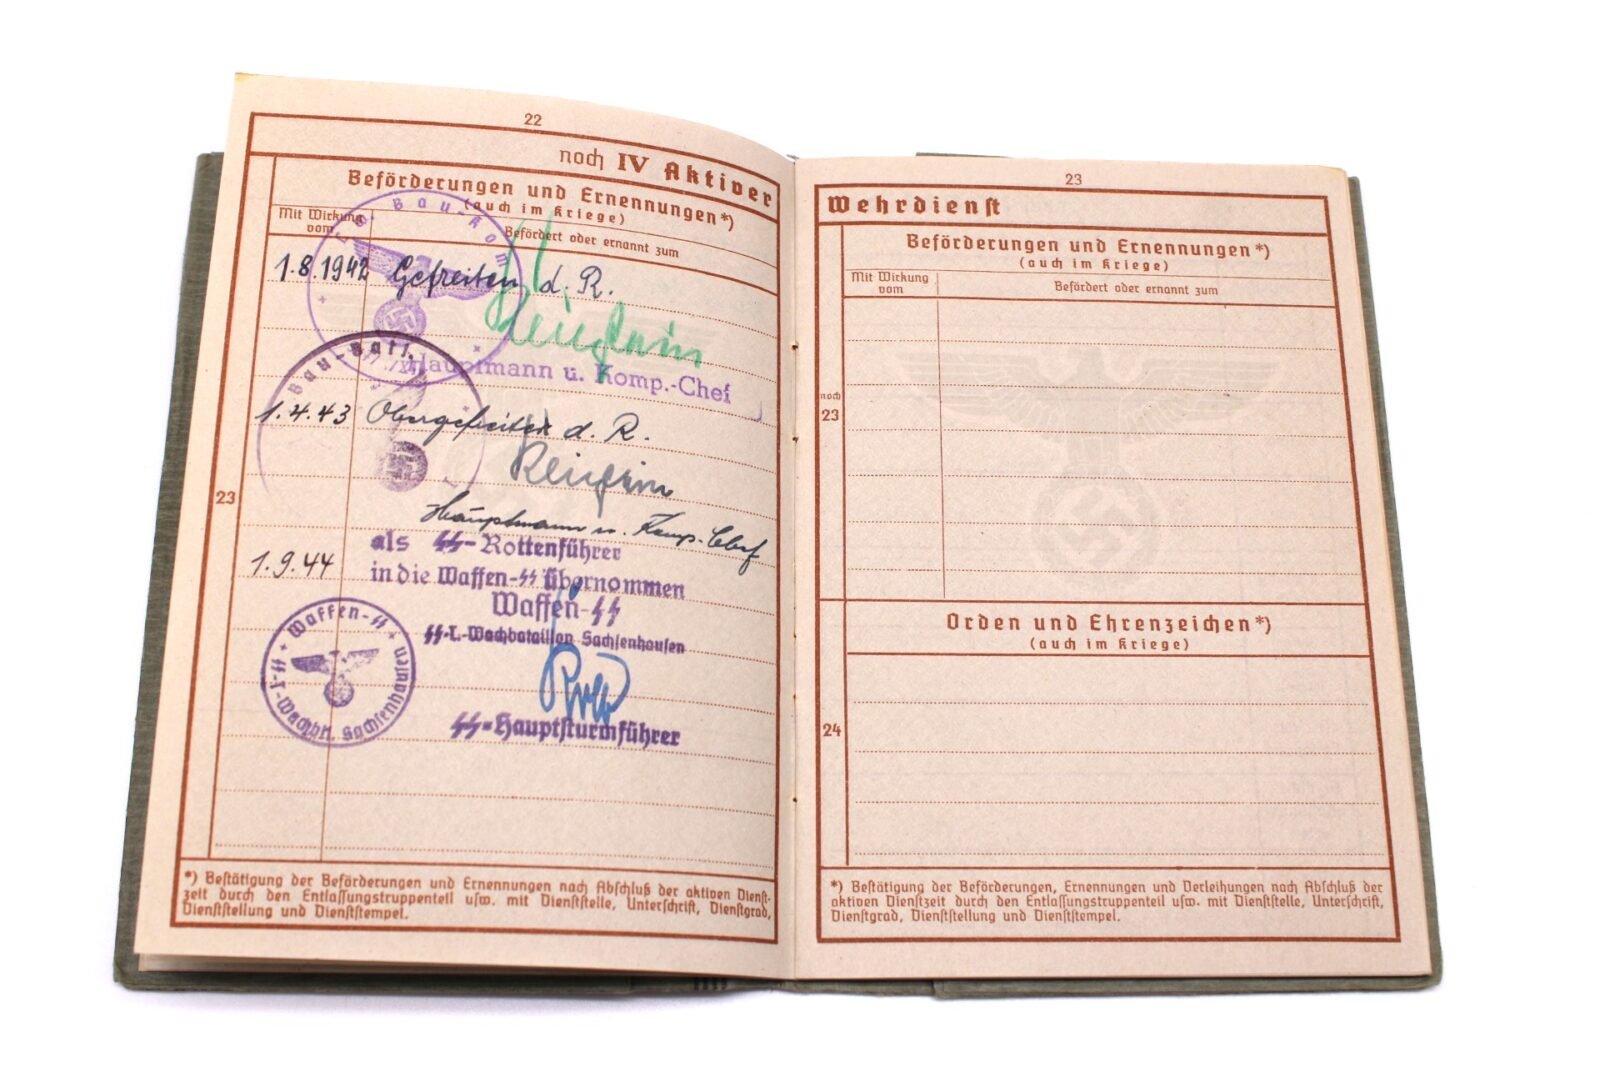 22
noch IV Aktiver
Beförderungen und Ernennungen*)
(auch im Kriege)
Mit Wirkung
vom
Befördert oder ernannt zum
Bau-Kom
1.8.1942 Gefreiten d. R.
Hauptmann u. Komp.-Chef
Bau-Batl.
1.4.43 Obergefreiten d. R.
Hauptmann u. Komp. Chef
23
1.9.44
als SS-Rottenführer
in die Waffen-SS übernommen
Waffen-SS
SS-T.-Wachbataillon Sachsenhausen
Waffen-SS
SS-T-Wachbtl. Sachsenhausen
SS-Hauptsturmführer
*) Bestätigung der Beförderungen und Ernennungen nach Abschluß der aktiven Dienst-
zeit durch den Entlassungstruppenteil usw. mit Dienststelle, Unterschrift, Dienstgrad,
Dienststellung und Dienststempel.
23
Wehrdienst
Beförderungen und Ernennungen*)
(auch im Kriege)
Mit Wirkung
vom
Befördert oder ernannt zum
noch
23
Orden und Ehrenzeichen*)
(auch im Kriege)
24
*) Bestätigung der Beförderungen, Ernennungen und Verleihungen nach Abschluß der
aktiven Dienstzeit durch den Entlassungstruppenteil usw. mit Dienststelle, Unterschrift,
Dienstgrad, Dienststellung und Dienststempel.